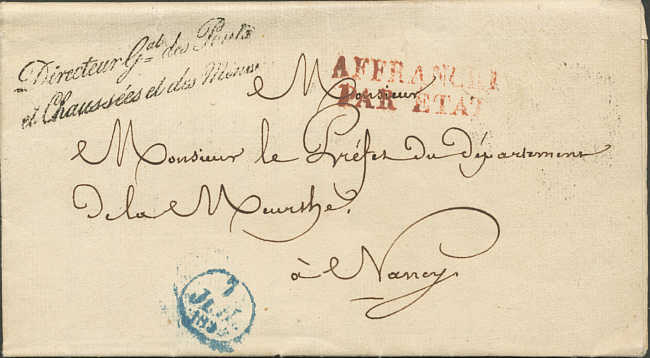 Directeur Gal des Ponts
et Chaussées et des Mines
AFFRANCHI
PAR ETAT
Monsieur
Monsieur le Préfet du département
De la Meurthe,
à Nancy
7